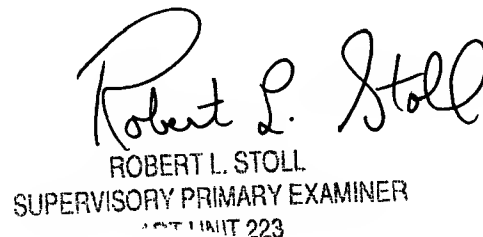 Robert L. Stoll
ROBERT L. STOLL
SUPERVISORY PRIMARY EXAMINER
UNIT 223